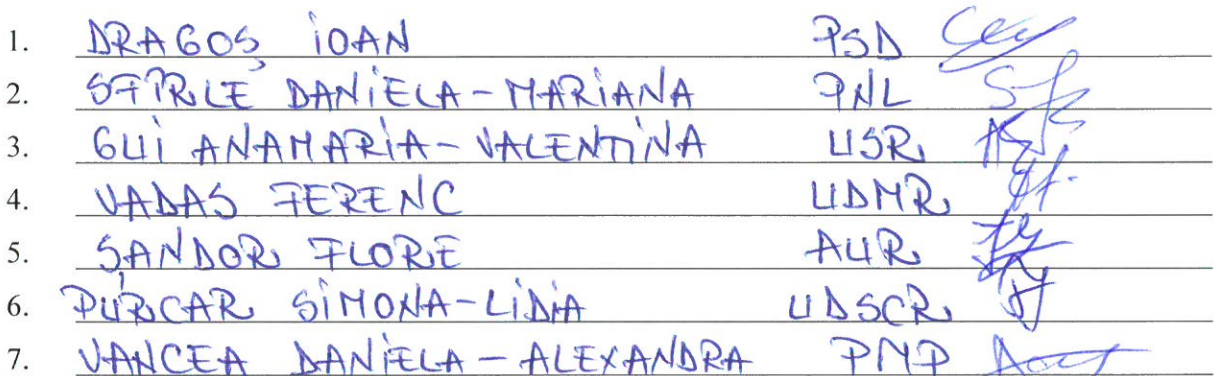 1. DRAGOȘ IOAN PSD
2. SFÎRLE DANIELA-MARIANA PNL
3. GUI ANAMARIA-VALENTINA USR
4. VADAS FERENC UDMR
5. SANDOR FLORE AUR
6. PURCAR SIMONA-LIDIA UDSCR
7. VANCEA DANIELA-ALEXANDRA PMP